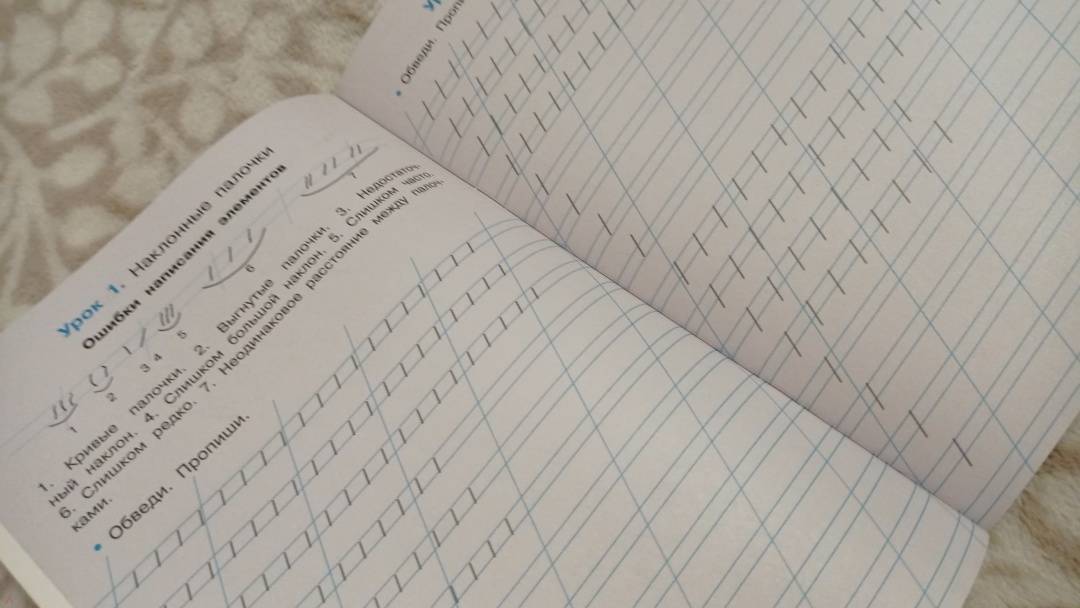 Урок 1. Наклонные палочки
Ошибки написания элементов
1 2 3 4 5 6 7
1. Кривые палочки. 2. Выгнутые палочки. 3. Недостаточ-
ный наклон. 4. Слишком большой наклон. 5. Слишком часто.
6. Слишком редко. 7. Неодинаковое расстояние между палоч-
ками.
• Обведи. Пропиши.
• Обведи.